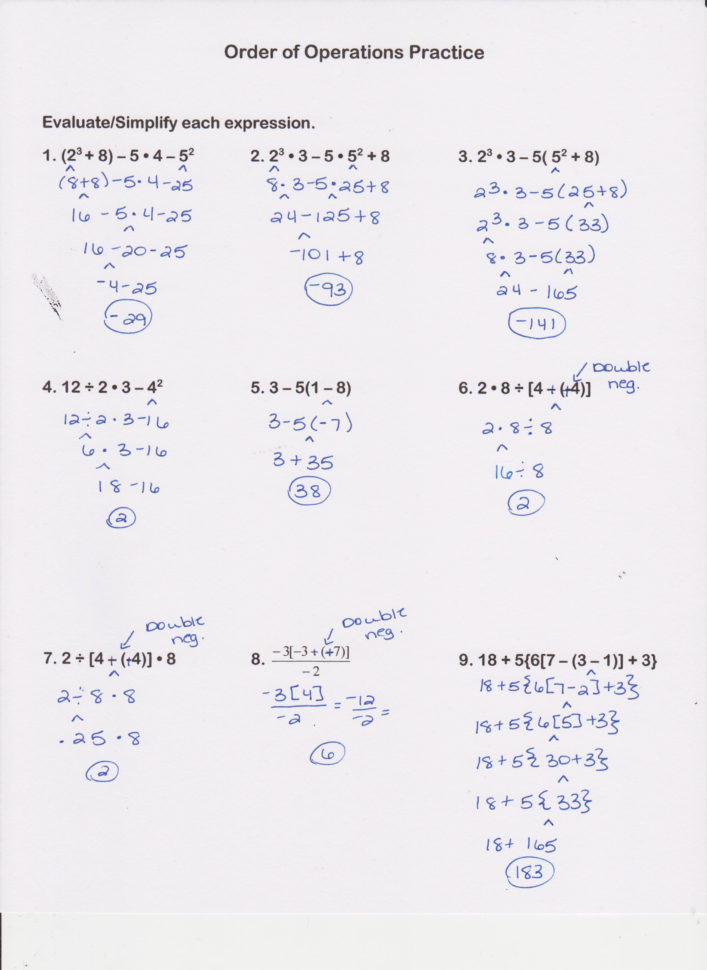 Order of Operations Practice
Evaluate/Simplify each expression.
1. (2³ + 8) – 5 • 4 – 5²
(8+8)-5·4-25
16 - 5·4-25
16 -20-25
-4-25
-29
2. 2³ • 3 – 5 • 5² + 8
8·3-5·25+8
24-125+8
-101+8
-93
3. 2³ • 3 – 5( 5² + 8)
2³·3-5(25+8)
2³·3-5(33)
8·3-5(33)
24 - 165
-141
4. 12 ÷ 2 • 3 – 4²
12÷2·3-16
6·3-16
18-16
2
5. 3 – 5(1 – 8)
3-5(-7)
3+35
38
Double
neg.
6. 2 • 8 ÷ [4 + (+4)]
2·8÷8
16÷8
2
Double
neg.
7. 2 ÷ [4 + (+4)] • 8
2÷8·8
.25·8
2
Double
neg.
8. –3[–3 + (+7)]
–2
-3[4] = -12 =
-2 -2
6
9. 18 + 5{6[7 – (3 – 1)] + 3}
18+5{6[7-2]+3}
18+5{6[5]+3}
18+5{30+3}
18+5{33}
18+ 165
183